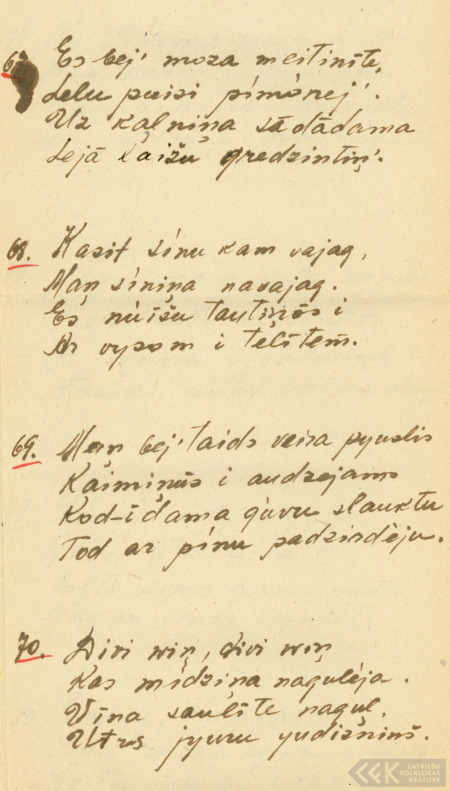 67. Es bej' moza meitinīte,
Lelu puisi pímónej'.
Uz kaļniņa sādādama
Lejā laižu gredzintiņ'.
68. Kasit sínu kam vajag,
Maņ síniņa navajag.
Es núīšu tautiņōs i
Ar vysom i telītem.
69. Maņ bej' taids veira pyuslis
Kaimiņūs i audzejams
Kod-īdama gúvu slauktu
Tod ar pínu padzirdēju.
70. Divi viņ, divi viņ
Kas mídziņa nagulēja.
Vīna saulīte nagul,
Utrs jyuru yudisniņš.
LATVIEŠU
FOLKLORAS
KRĀTUVE